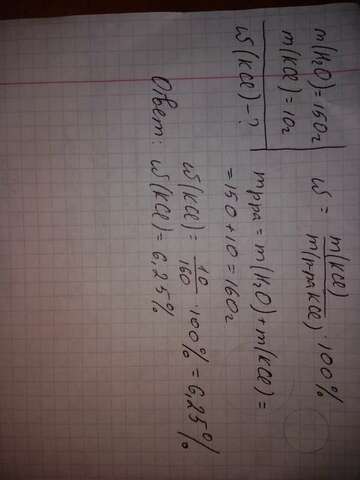 m(H₂O)=150г
m(KCl)=10г
ω(KCl)-?
ω = m(KCl) / m(р-ра KCl) · 100%
mр-ра = m(H₂O)+m(KCl)=
=150+10=160г
ω(KCl)= 10/160 · 100% = 6,25%
Ответ: ω(KCl)=6,25%